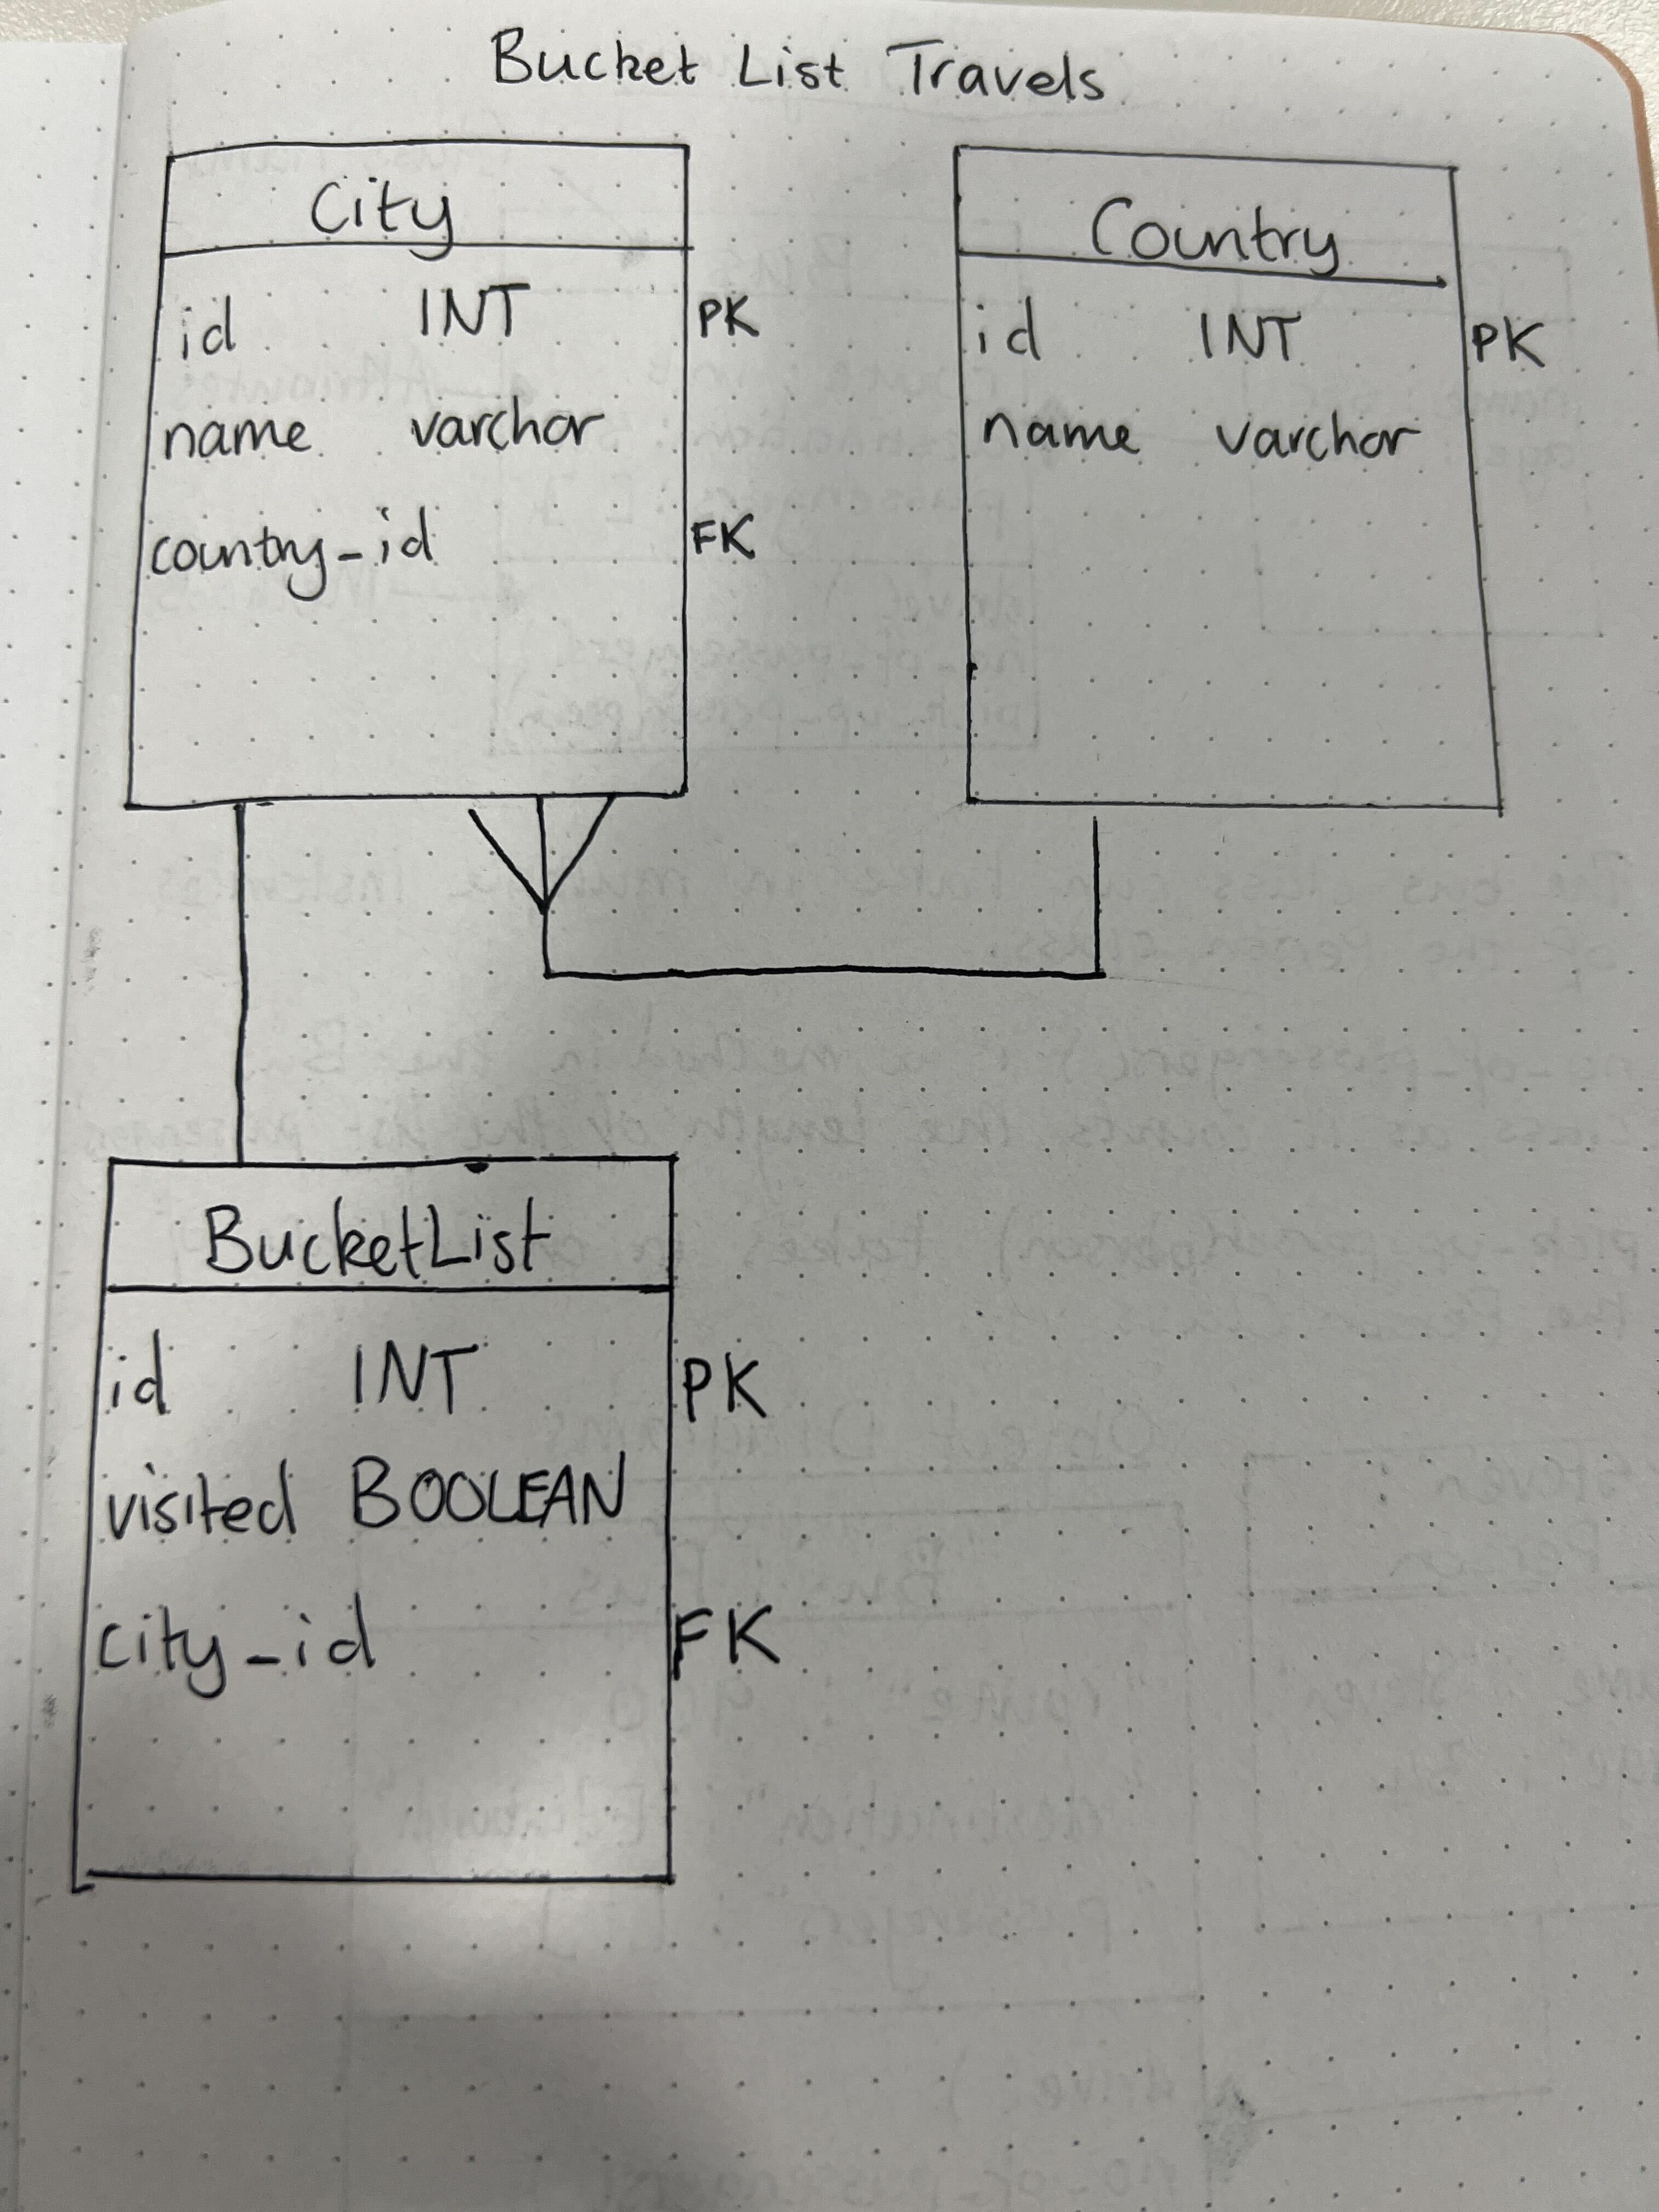 Bucket List Travels
City
id INT PK
name varchar
country_id FK
Country
id INT PK
name varchar
BucketList
id INT PK
visited BOOLEAN
city_id FK